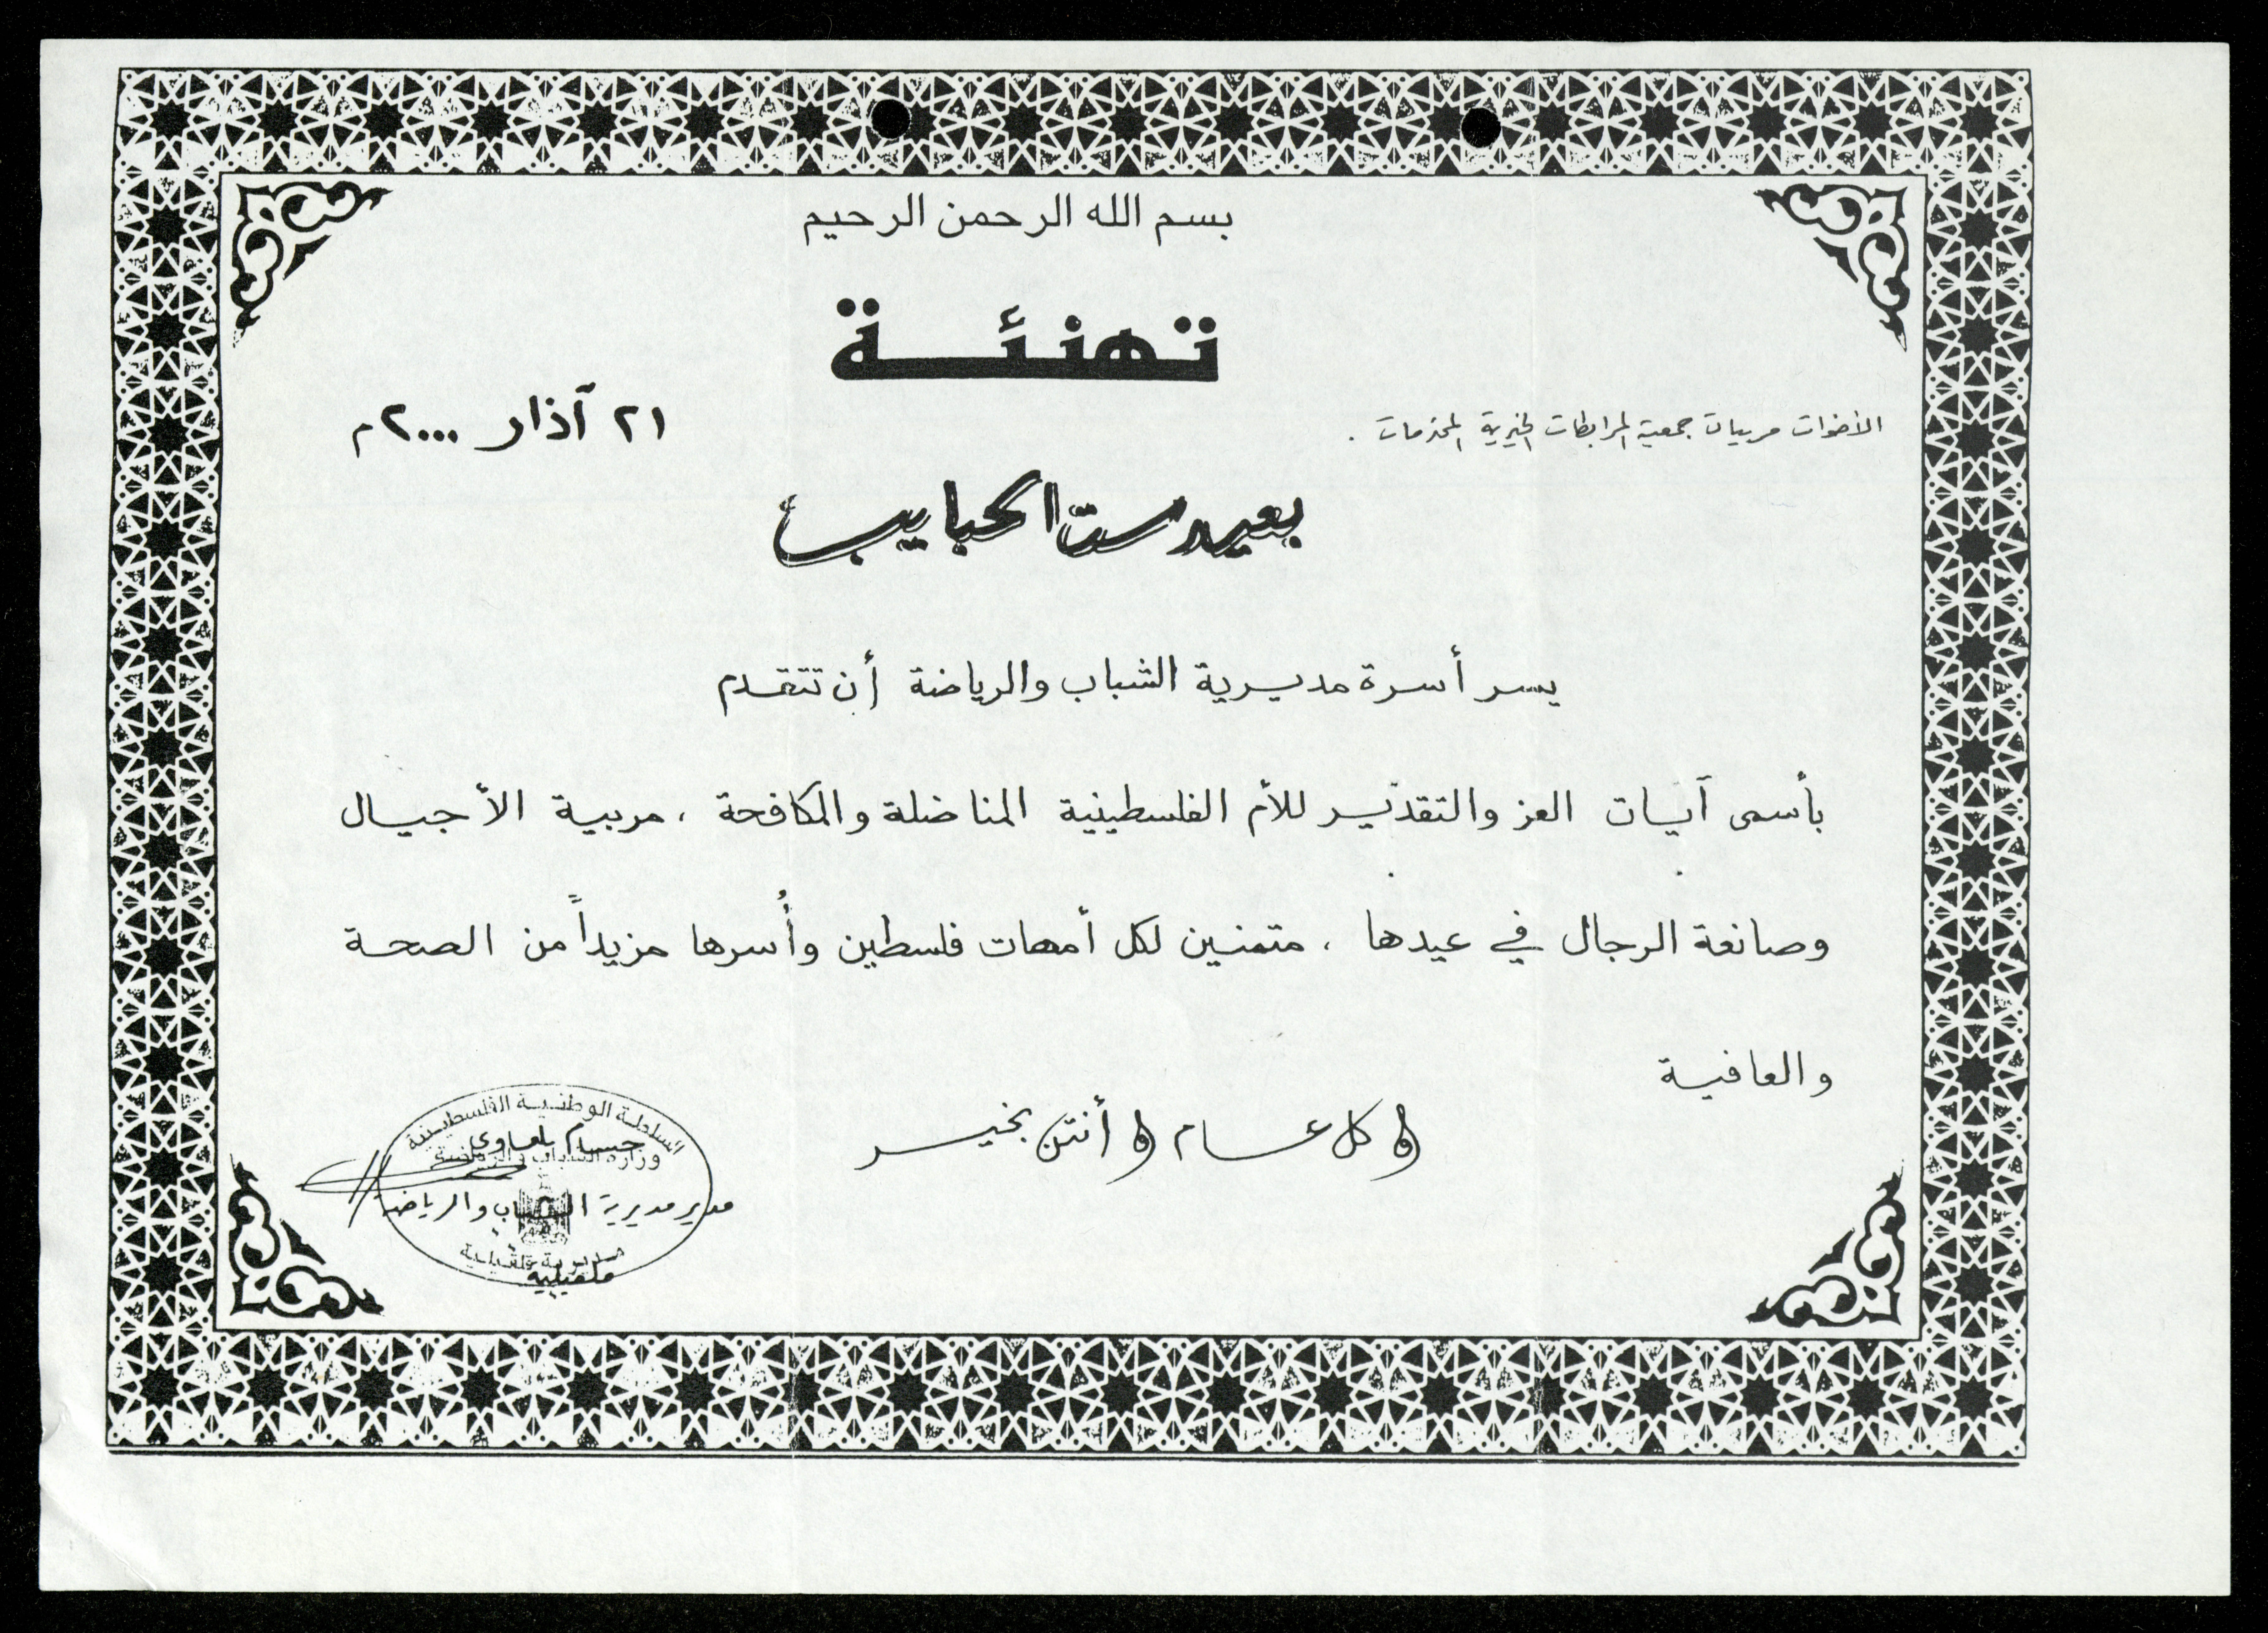 بسم الله الرحمن الرحيم
تهنئة
الأخوات مربيات جمعية المرابطات الخيرية المحترمات .
٢١ آذار ٢٠٠٠م
بعيد ست الحبايب
يسر أسرة مديرية الشباب والرياضة أن تتقدم
بأسمى آيات العز والتقدير للأم الفلسطينية المناضلة والمكافحة ، مربية الأجيال
وصانعة الرجال في عيدها ، متمنين لكل أمهات فلسطين وأُسرها مزيداً من الصحة
والعافية
وكل عام وأنتن بخير
السلطة الوطنية الفلسطينية
حسام بلعاوي
وزارة الشباب والرياضة
مدير مديرية الشباب والرياضة
مديرية قلقيلية
قلقيلية